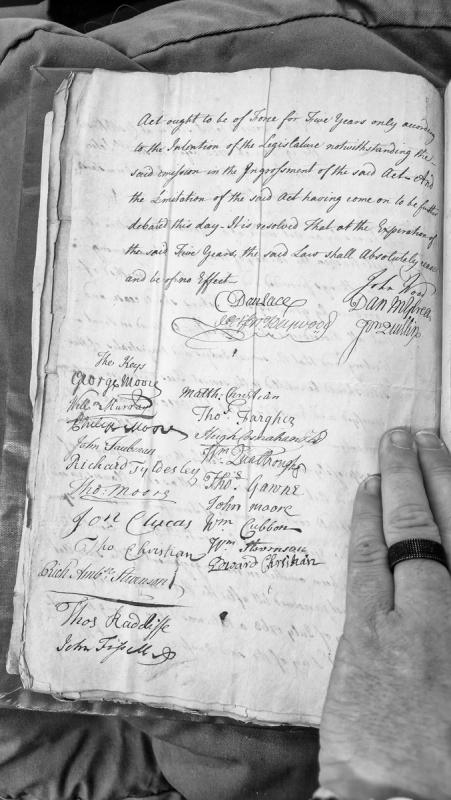 Act ought to be of Force for Five Years only according
to the Intention of the Legislature notwithstanding the
said omission in the Ingrossment of the said Act And
the Limitation of the said Act having come on to be further
debated this day. It is resolved That at the Expiration of
the said Five Years, the said Law shall Absolutely cease
and be of no Effect
John Wood
C Danlace
Dan Mylrea
Jno Quillin
The Keys
George Moore
Matth: Christian
Will: Murray
Thos. Fargher
Philip Moore
Hugh
John Taubman
Wm Qualtrough
Richard Tyldesley
Thos Gawne
Tho: Moore
John Moore
Jon Clucas
Wm Cubbon
Tho Christian
Wm
Edward Christian
Rich Ambse Stevenson
Thos Radcliffe
John